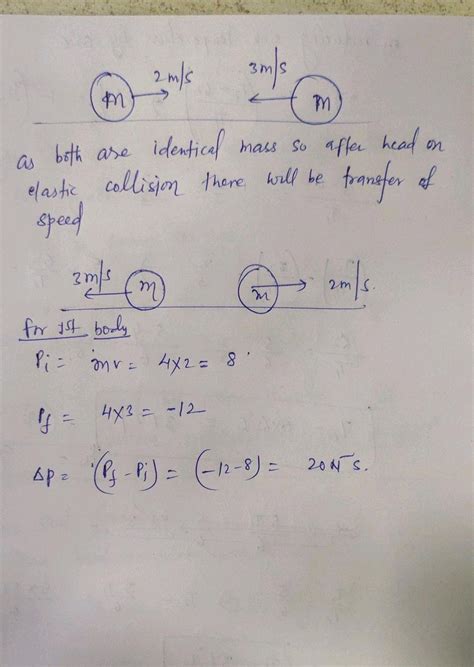 2m/s 3m/s
m m
as both are identical mass so after head on
elastic collision there will be transfer of
speed
3m/s m m 2m/s.
for 1st body
Pi = mv = 4x2 = 8
Pf = 4x3 = -12
Δp = (Pf - Pi) = (-12-8) = 20 N s.